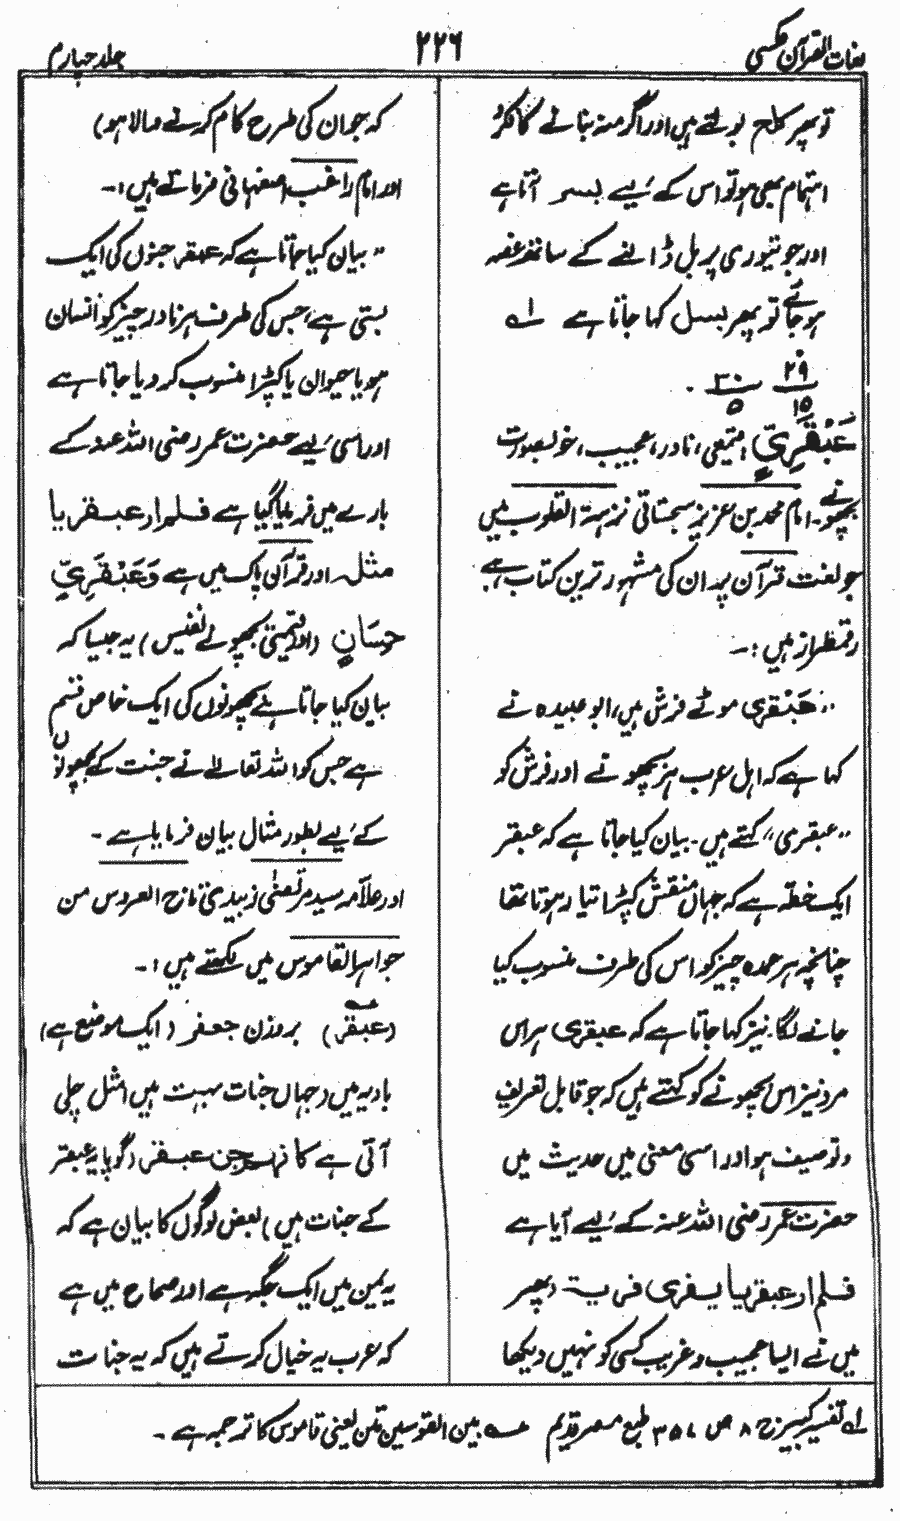 لغات القرآن عکسی
۲۲۶
جلد چہارم
تو پھر کلح بولتے ہیں اور اگر منہ بنانے کا فکر و
اہتمام بھی ہو تو اس کے لیے بسر آتا ہے
اور جو تیوری پر بل ڈالنے کے ساتھ غصہ
ہو جائے تو پھر بسل کہا جاتا ہے لہ
۲۹ ۳۰
۱۵ ۵
عَبْقَرِيٍّ ؛ قیمتی، نادر، عجیب، خوبصورت
بچھونے۔ امام محمد بن عزیز سجستانی نزہۃ القلوب میں
جو لغت قرآن پر ان کی مشہور ترین کتاب ہے
رقمطراز ہیں :۔
"عَبْقَرِی موٹے فرش ہیں، ابو عبیدہ نے
کہا ہے کہ اہل عرب ہر بچھونے اور فرش کو
"عبقری" کہتے ہیں۔ بیان کیا جاتا ہے کہ عبقر
ایک خطہ ہے کہ جہاں منقش کپڑا تیار ہوتا تھا
چنانچہ ہر عمدہ چیز کو اس کی طرف منسوب کیا
جانے لگا۔ نیز کہا جاتا ہے کہ عبقری ہر اس
مرد نیز اس بچھونے کو کہتے ہیں کہ جو قابل تعریف
و توصیف ہو اور اسی معنی میں حدیث میں
حضرت عمر رضی اللہ عنہ کے لیے آیا ہے
فلم ار عبقریا یفری فریہ (پھر
میں نے ایسا عجیب و غریب کسی کو نہیں دیکھا
کہ جو ان کی طرح کام کرنے والا ہو)
اور امام راغب اصفہانی فرماتے ہیں :۔
"بیان کیا جاتا ہے کہ عبقر جنوں کی ایک
بستی ہے، جس کی طرف ہر نادر چیز کو انسان
ہو یا حیوان یا کپڑا منسوب کر دیا جاتا ہے
اور اسی لیے حضرت عمر رضی اللہ عنہ کے
بارے میں فرمایا گیا ہے فلم ار عبقریا
مثلہ اور قرآن پاک میں ہے وَعَبْقَرِيٍّ
حِسَانٍ (اور قیمتی بچھونے نفیس) یہ جیسا کہ
بیان کیا جاتا ہے بچھونوں کی ایک خاص قسم
ہے جس کو اللہ تعالےٰ نے جنت کے بچھونوں
کے لیے بطور مثال بیان فرمایا ہے۔
اور علامہ سید مرتضیٰ زبیدی تاج العروس من
جواہر القاموس میں لکھتے ہیں :۔
(عبقر) بروزن جعفر (ایک موضع ہے)
بادیہ میں (جہاں جنات بہت ہیں) مثل چلی
آتی ہے کانہم جن عبقر (گویا یہ عبقر
کے جنات ہیں) بعض لوگوں کا بیان ہے کہ
یہ یمن میں ایک جگہ ہے اور صحاح میں ہے
کہ عرب یہ خیال کرتے ہیں کہ یہ جنات
لہ تفسیر کبیر ج ۸ ص ۳۵۷ طبع مصر قدیم ؎ بین القوسین متن یعنی قاموس کا ترجمہ ہے۔